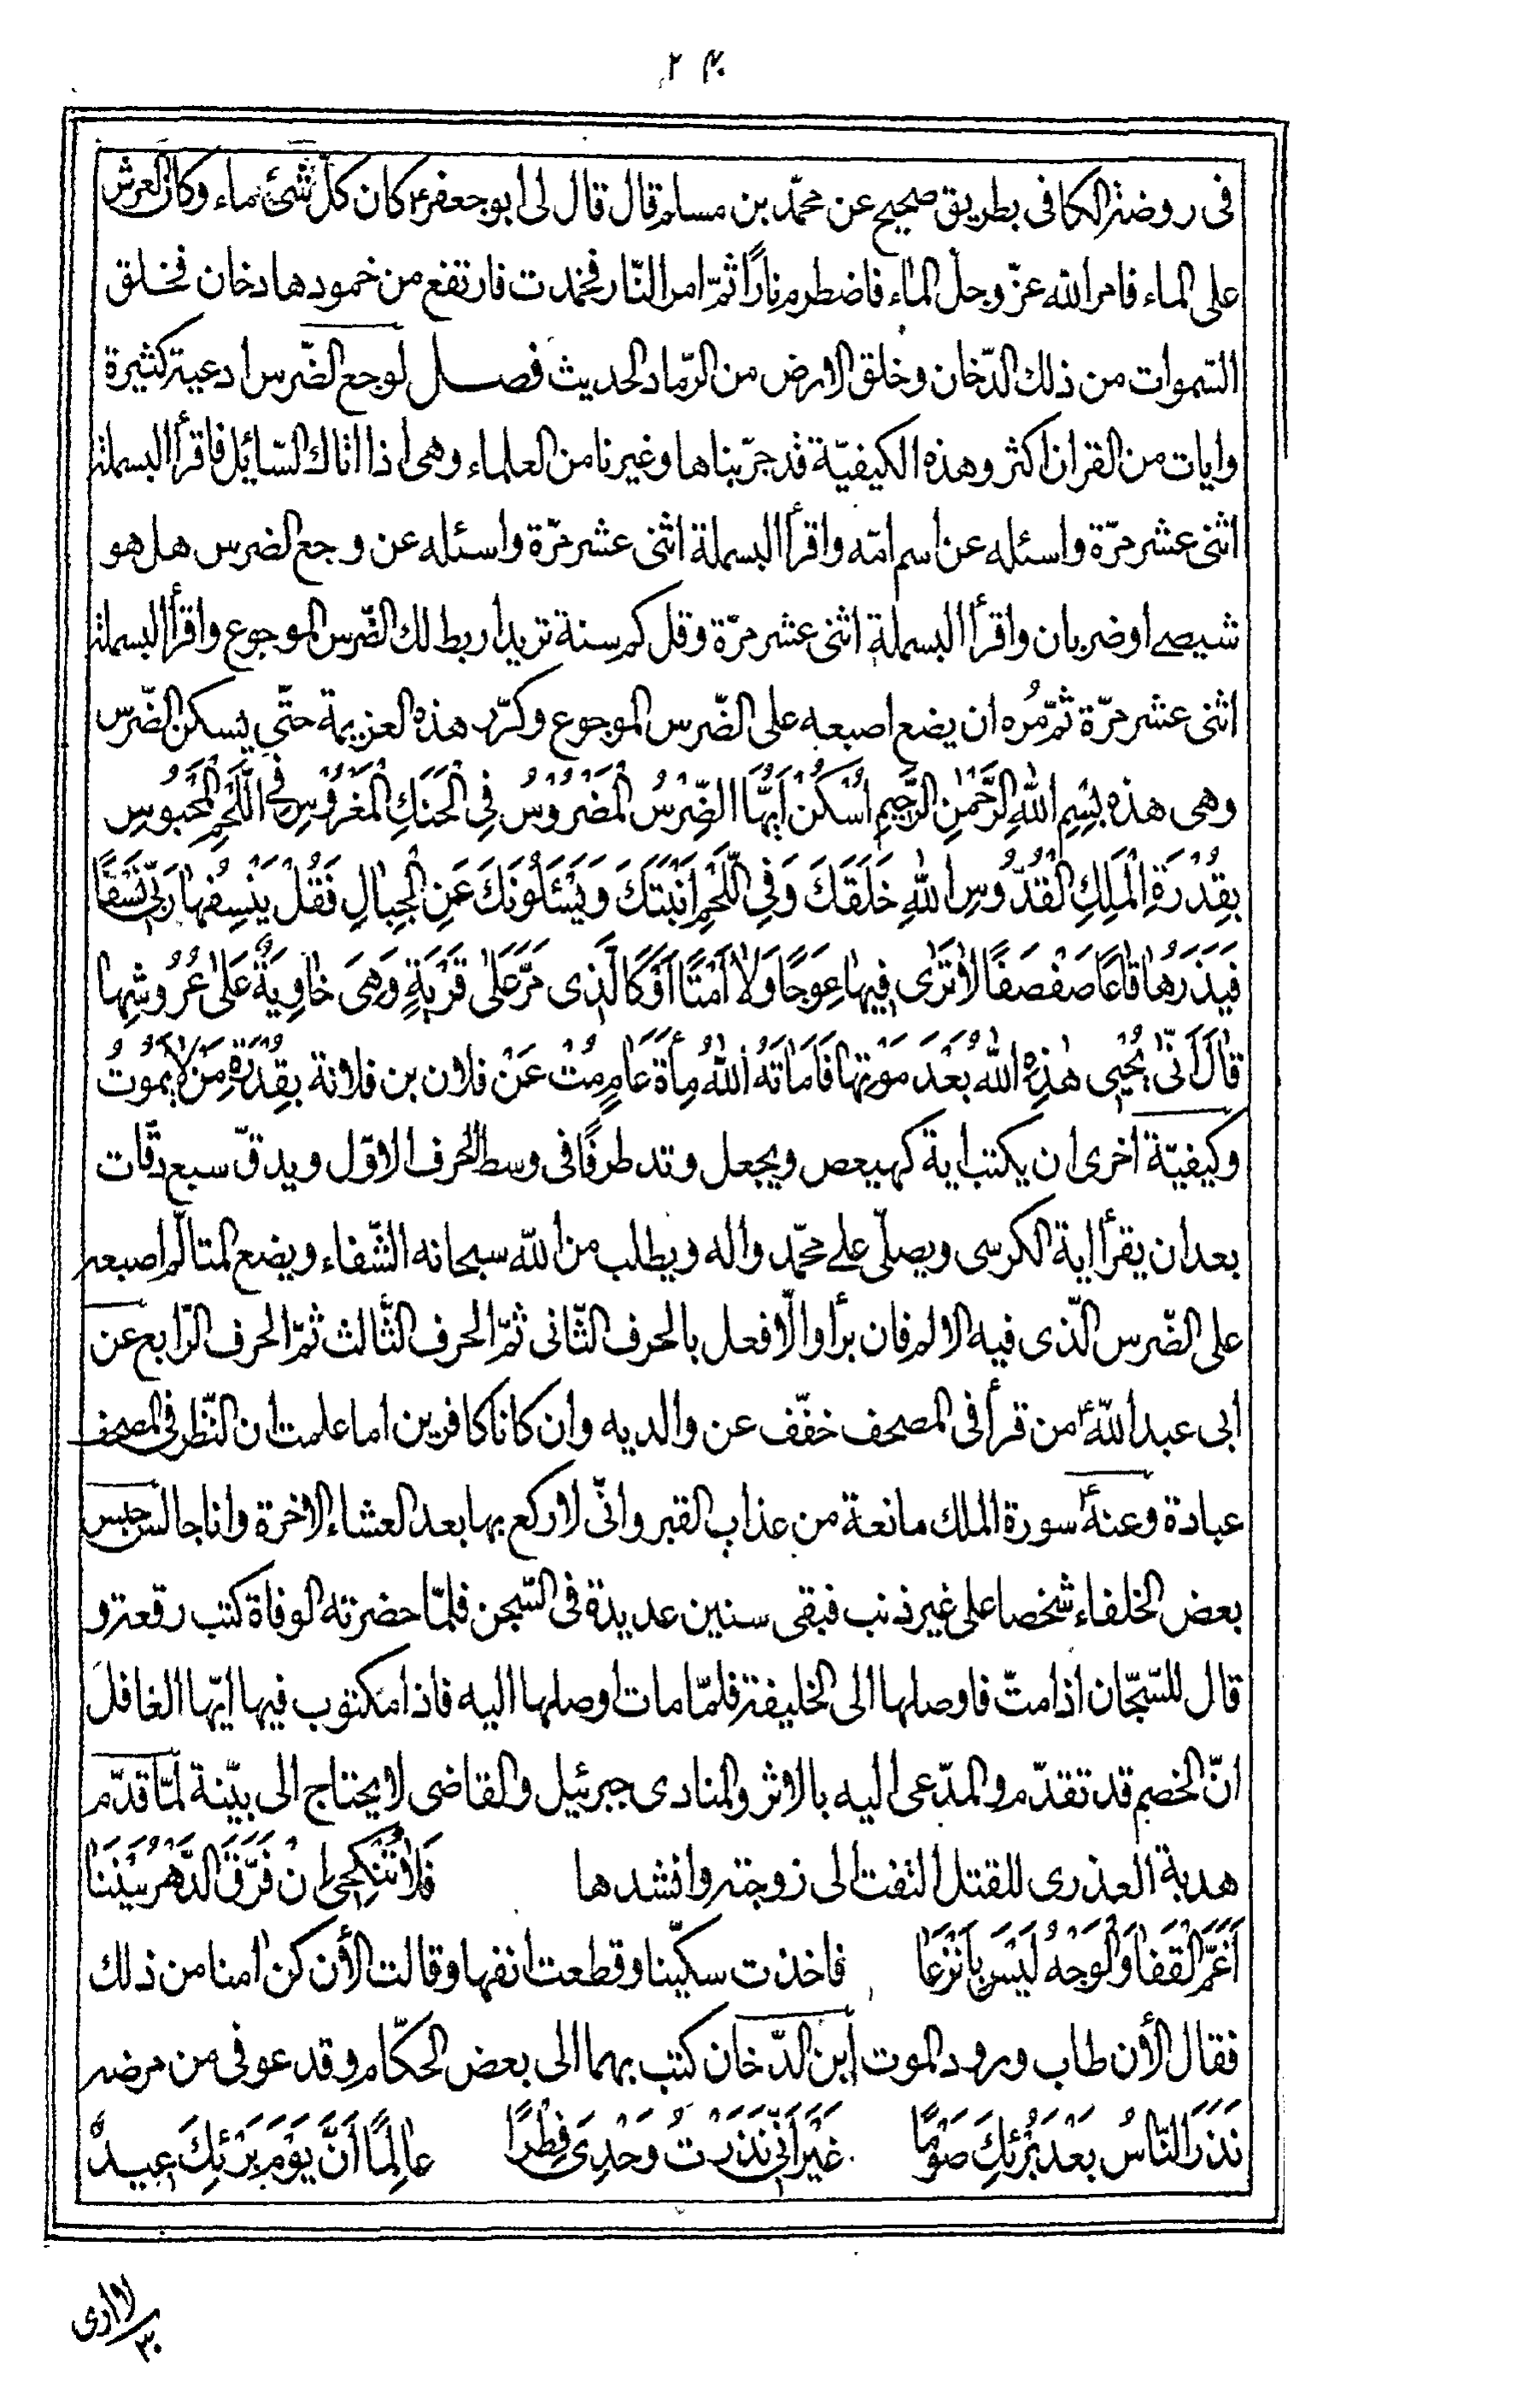 ٢٣٠
فى روضة الكافى بطريق صحيح عن محمّد بن مسلم قال قال لى ابو جعفر ع كان كلّ شىء ماء وكان العرش
على الماء فامر الله عزّ وجلّ الماء فاضطرم نارًا ثمّ امر النّار فخمدت فارتفع من خمودها دخان فخلق
السّموات من ذلك الدّخان وخلق الارض من الرّماد الحديث فصل لوجع الضّرس ادعية كثيرة
وايات من القران اكثر وهذه الكيفيّة قد جرّبناها وغيرنا من العلماء وهى اذا اتاك السّائل فاقرأ البسملة
اثنى عشر مرّة واسئله عن اسم امّه واقرأ البسملة اثنى عشر مرّة واسئله عن وجع الضرس هل هو
شيصے او ضربان واقرأ البسملة اثنى عشر مرّة وقل كم سنة تريد اربط لك الضّرس الموجوع واقرأ البسملة
اثنى عشر مرّة ثمّ مُره ان يضع اصبعه على الضّرس الموجوع وكرّر هذه العزيمة حتّى يسكن الضّرس
وهى هذه بِسْمِ اللهِ الرَّحْمٰنِ الرَّحِيمِ اُسْكُنْ اَيُّهَا الضِّرْسُ الْمَضْرُوسُ فِي الْحَنَكِ الْمَغْرُوسِ فِي اللَّحْمِ الْمَحْبُوسِ
بِقُدْرَةِ الْمَلِكِ الْقُدُّوسِ اللهِ خَلَقَكَ وَفِي اللَّحْمِ اَنْبَتَكَ وَيَسْئَلُونَكَ عَنِ الْجِبٰالِ فَقُلْ يَنْسِفُهٰا رَبّى نَسْفًا
فَيَذَرُهٰا قٰاعًا صَفْصَفًا لاٰ تَرٰى فِيهٰا عِوَجًا وَلاٰ اَمْتًا اَوْ كَالَّذِى مَرَّ عَلٰى قَرْيَةٍ وَهِىَ خٰاوِيَةٌ عَلىٰ عُرُوشِهٰا
قٰالَ اَنّٰى يُحْيِى هٰذِهِ اللهُ بَعْدَ مَوْتِهٰا فَاَمٰاتَهُ اللهُ مِأَةَ عٰامٍ مُتْ عَنْ فلان بن فلانة بِقُدْرَةِ مَنْ لاٰ يَمُوتُ
وكيفيّة اخرى ان يكتب اية كهيعص ويجعل وتد طرفًا فى وسط الحرف الاوّل ويدقّ سبع دقّات
بعد ان يقرأ اية الكرسى ويصلّى على محمّد واله ويطلب من الله سبحانه الشّفاء ويضع المتالّم اصبعه
على الضّرس الّذى فيه الالم فان برأ والّا فعل بالحرف الثّانى ثمّ الحرف الثّالث ثمّ الحرف الرّابع عن
ابى عبد الله ع من قرأ فى المصحف خفّف عن والديه وان كانا كافرين اما علمت ان النّظر فى المصحف
عبادة وعنه ع سورة الملك مانعة من عذاب القبر وانّى لاركع بها بعد العشاء الاخرة وانا جالس حبس
بعض الخلفاء شخصا على غير ذنب فبقى سنين عديدة فى السّجن فلمّا حضرته الوفاة كتب رقعة و
قال للسّجّان اذا متّ فاوصلها الى الخليفة فلمّا مات اوصلها اليه فاذا مكتوب فيها ايّها الغافل
انّ الخصم قد تقدّم والمدّعى اليه بالاثر والمنادى جبرئيل والقاضى لا يحتاج الى بيّنة لمّا قدّم
هدبة العذرى للقتل التفت الى زوجته وانشدها فَلاٰ تُنْكِحِى اِنْ فَرَّقَ الدَّهْرُ بَيْنَنٰا
اَغَمَّ الْقَفٰا وَالْوَجْهُ لَيْسَ بِاَنْزَعٰا فاخذت سكّينا وقطعت انفها وقالت الأن كن امنا من ذلك
فقال الأن طاب ورود الموت ابن الدّخان كتب بهما الى بعض الحكّام وقد عوفى من مرضه
نَذَرَ النّاسُ بَعْدَ بُرْئِكَ صَوْمًا غَيْرَ اَنّى نَذَرْتُ وَحْدِى فِطْرًا عٰالِمًا اَنَّ يَوْمَ بَرْئِكَ عِيدٌ